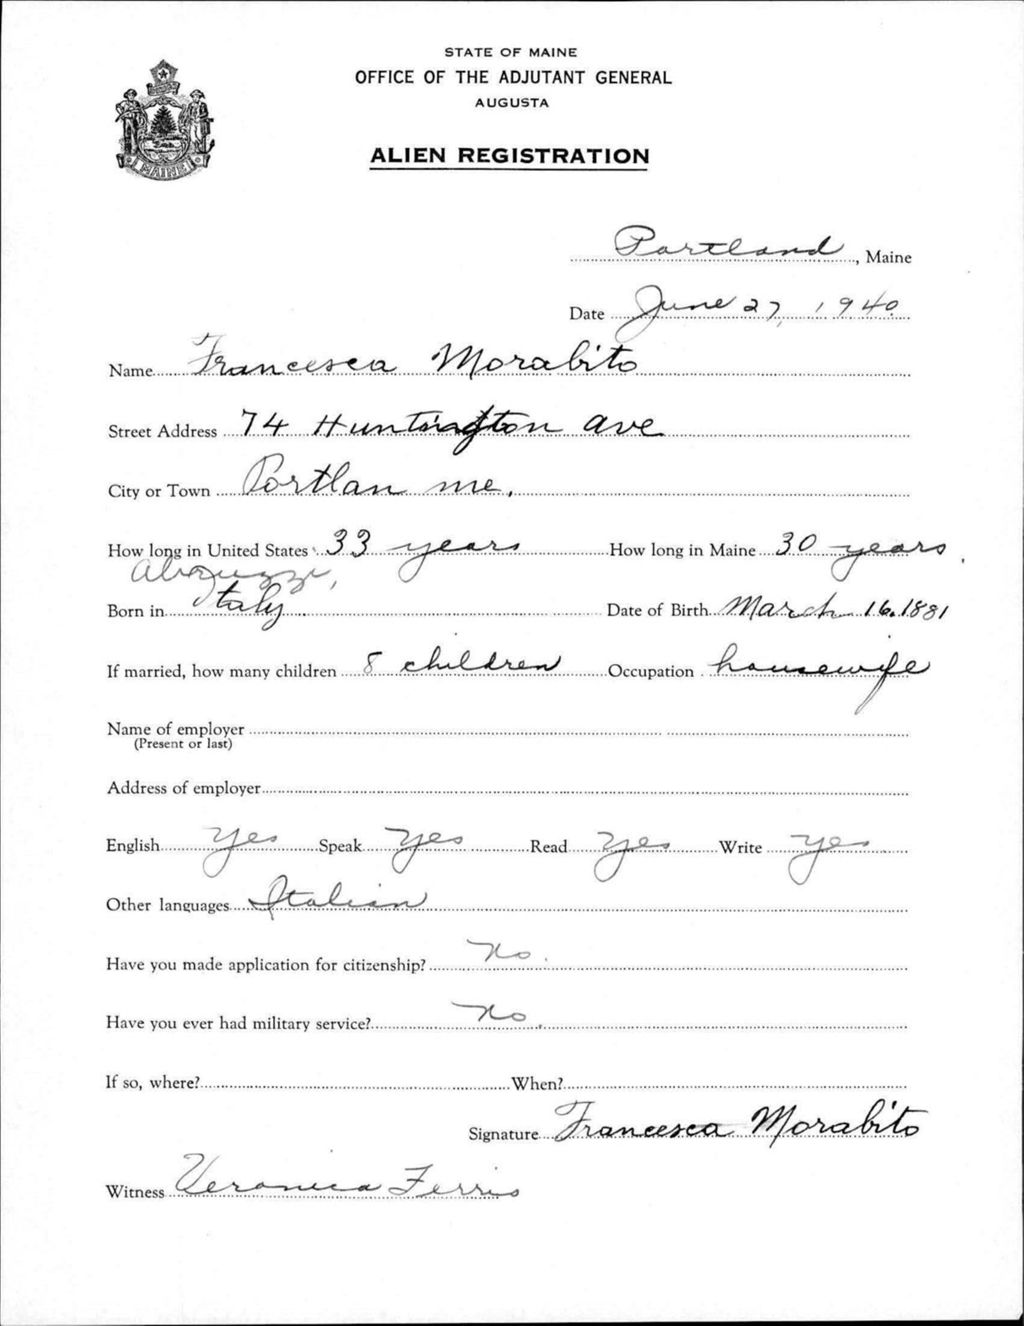 STATE OF MAINE
OFFICE OF THE ADJUTANT GENERAL
AUGUSTA
ALIEN REGISTRATION
MAINE
Portland, Maine
Date June 27, 1940
Name Francesca Morabito
Street Address 74 Huntington Ave
City or Town Portlan me.
How long in United States 33 years How long in Maine 30 years
Abruzzi,
Born in Italy Date of Birth March 16, 1881
If married, how many children 8 children Occupation housewife
Name of employer
(Present or last)
Address of employer
English yes Speak yes Read yes Write yes
Other languages Italian
Have you made application for citizenship? No.
Have you ever had military service? No.
If so, where? When?
Signature Francesca Morabito
Witness Veronica Ferris